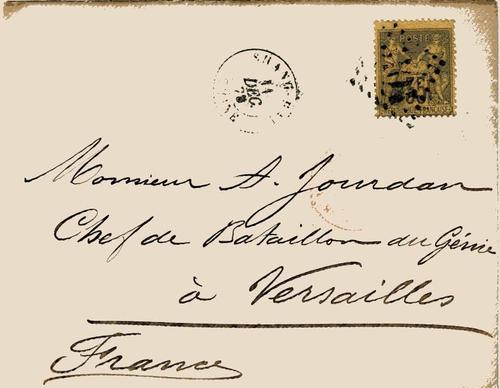 SHANG-HAI
11
DEC.
78
POSTE
Monsieur A. Jourdan
Chef de Bataillon du Génie
à Versailles
France